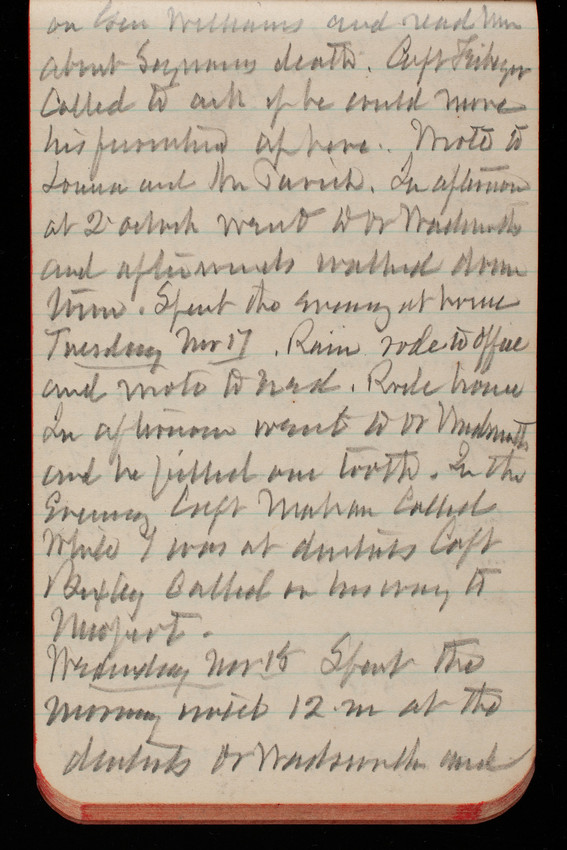 on Gen Williams and read him
about Seymours death. Capt
Called to ask if he could move
his furniture up here. Wrote to
and Mr Parish. In afternoon
at 2 oclock went to Dr Wadsworths
and afterwards walked down
town. Spent the evening at home
Tuesday Nov 17. Rain rode to office
and wrote to Ned. Rode home
In afternoon went to Dr Wadsworths
and he filled one tooth. In the
Evening Capt Mahan Called
While I was at dentists Capt
Bixby Called on his way to
Newport.
Wednesday Nov 18 Spent the
morning until 12 m at the
dentists Dr Wadsworth and